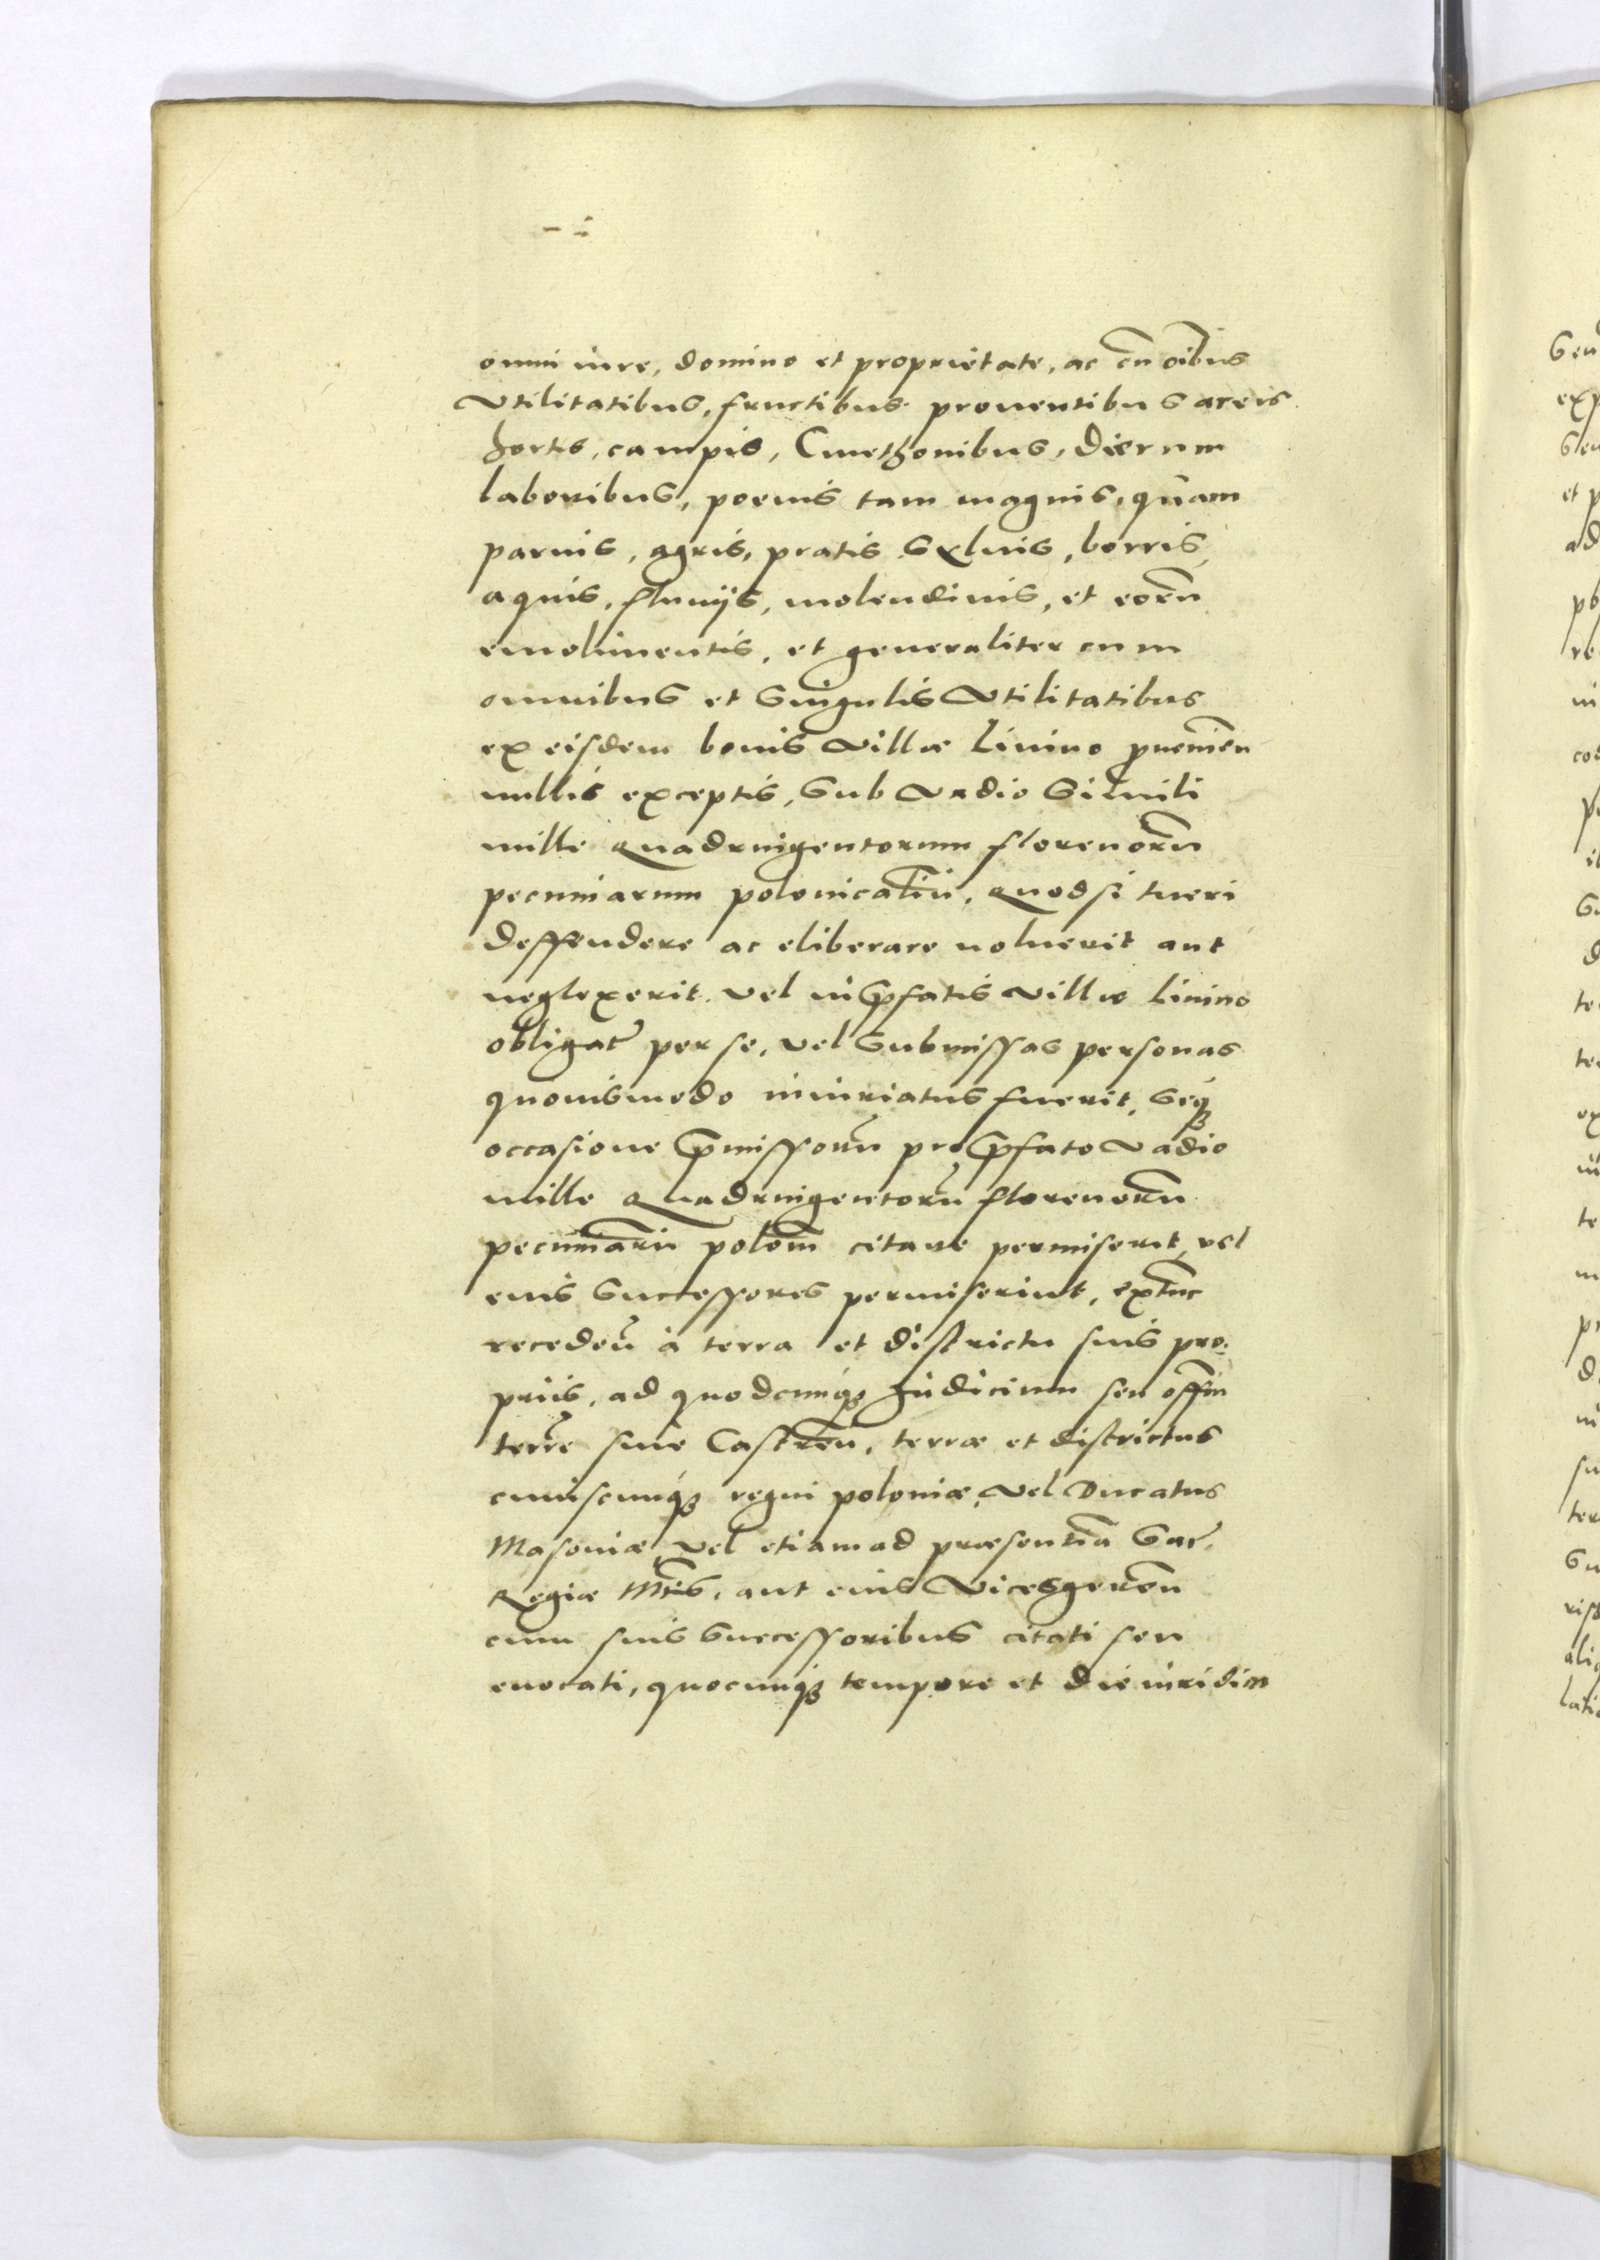 omni iure, domino et proprietate, ac cũ oĩbus
Vtilitatibus, fructibus prouentibus areis
hortis, campis, Cmethonibus, Dierum
laboribus, poenis tam magnis, quam
paruis, agris, pratis Syluis, borris,
aquis, fluuijs, molendinis, et eorũ
emolimentis, et generaliter cum
omnibus et Singulis Vtilitatibus
ex eisdem bonis Villæ Linino ꝓuenieñ
nullis exceptis, Sub Vadio Simili
mille Quadringentorum florenorũ
pecuniarum polonicaliũ, Quod si tueri
deffendere ac eliberare noluerit aut
neglexerit. Vel in p̃fatis Villæ Linino
obligat̃ per se, vel Submissas personas
quouismodo iniuriatus fuerit, Seq́ꝫ
occasione p̃missorũ pro p̃fato Vadio
mille Quadringentorũ florenorũ
pecuniarũ poloñ citare permiserit, vel
eius Successores permiserint, extũc
recedeñ à terra et districtu suis pro:
priis, ad quodcunq́ꝫ Iudicium seu offm̃
terr̃e siue Castreñ, terræ et districtus
cuiuscunq́ꝫ regni poloniæ, Vel Ducatus
Masouiæ, Vel etiam ad præsentiã Sac̃.
Regiæ Mtis̃, aut eius Vicesgereñ
cum suis Successoribus citati seu
euocati, quocunq́ꝫ tempore et die iuridico